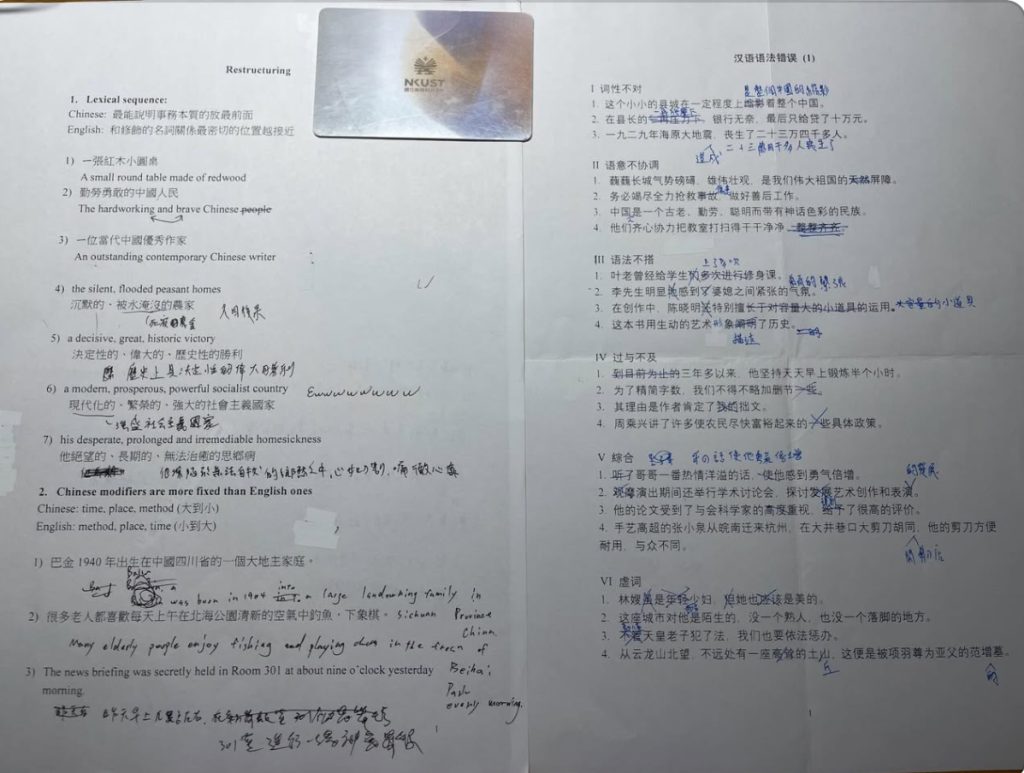 NKUST
Restructuring
1. Lexical sequence:
Chinese: 最能說明事務本質的放最前面
English: 和修飾的名詞關係最密切的位置越接近
1) 一張紅木小圓桌
A small round table made of redwood
2) 勤勞勇敢的中國人民
The hardworking and brave Chinese people
3) 一位當代中國優秀作家
An outstanding contemporary Chinese writer
4) the silent, flooded peasant homes
沉默的、被水淹沒的農家
5) a decisive, great, historic victory
決定性的、偉大的、歷史性的勝利
歷史上具決定性的偉大勝利
6) a modern, prosperous, powerful socialist country
現代化的、繁榮的、強大的社會主義國家
7) his desperate, prolonged and irremediable homesickness
他絕望的、長期的、無法治癒的思鄉病
2. Chinese modifiers are more fixed than English ones
Chinese: time, place, method (大到小)
English: method, place, time (小到大)
1) 巴金 1940 年出生在中國四川省的一個大地主家庭。
was born in 1904 into a large landowning family in
Sichuan Province China.
2) 很多老人都喜歡每天上午在北海公園清新的空氣中釣魚，下象棋。
Many elderly people enjoy fishing and playing chess in the fresh of
Beihai Park every morning.
3) The news briefing was secretly held in Room 301 at about nine o'clock yesterday
morning.
汉语语法错误 (1)
I 词性不对
是整個中國的縮影
1. 这个小小的县城在一定程度上缩影着整个中国。
2. 在县长的再压力下，银行无奈，最后只给贷了十万元。
3. 一九二九年海原大地震，丧生了二十三万四千多人。
造成
II 语意不协调
1. 巍巍长城气势磅礴，雄伟壮观，是我们伟大祖国的天然屏障。
2. 务必竭尽全力抢救事故，做好善后工作。
3. 中国是一个古老、勤劳、聪明而带有神话色彩的民族。
4. 他们齐心协力把教室打扫得干干净净、整整齐齐。
III 语法不搭
上了多次
1. 叶老曾经给学生们多次进行修身课。
2. 李先生明显地感到了婆媳之间紧张的气氛。
3. 在创作中，陈晓明特别擅长于对容量大的小道具的运用。
大容量的小道具
4. 这本书用生动的艺术形象阐明了历史。
描述
IV 过与不及
1. 到目前为止的三年多以来，他坚持天天早上锻炼半个小时。
2. 为了精简字数，我们不得不略加删节一些。
3. 其理由是作者肯定了我的拙文。
4. 周乘兴讲了许多使农民尽快富裕起来的一些具体政策。
V 综合
1. 听了哥哥一番热情洋溢的话，使他感到勇气倍增。
2. 观摩演出期间还举行学术讨论会，探讨发展艺术创作和表演。
3. 他的论文受到了与会科学家的高度重视，给予了很高的评价。
4. 手艺高超的张小泉从皖南迁来杭州，在大井巷口大剪刀胡同，他的剪刀方便
耐用，与众不同。
VI 虚词
1. 林嫂虽是年轻少妇，但她也应该是美的。
2. 这座城市对他是陌生的，没一个熟人，也没一个落脚的地方。
3. 不管天皇老子犯了法，我们也要依法惩办。
4. 从云龙山北望，不远处有一座高耸的土山，这便是被项羽尊为亚父的范增墓。
丘
1